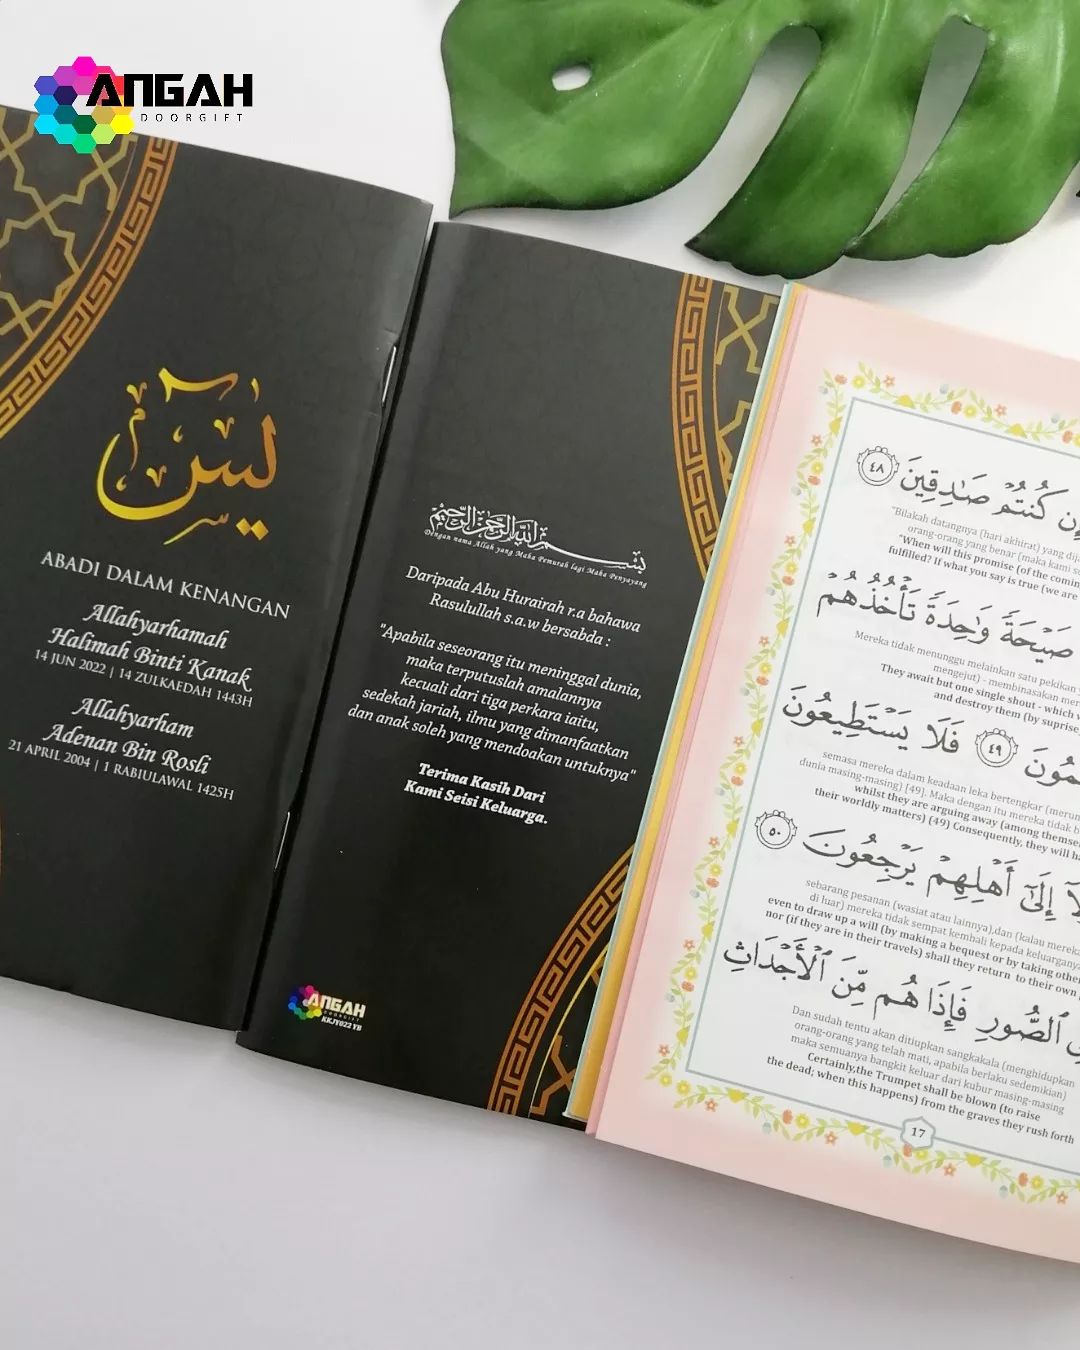 ANGAH
DOORGIFT
يس
ABADI DALAM KENANGAN
Allahyarhamah
Halimah Binti Kanak
14 JUN 2022 | 14 ZULKAEDAH 1443H
Allahyarham
Adenan Bin Rosli
21 APRIL 2004 | 1 RABIULAWAL 1425H
بسم الله الرحمن الرحيم
Dengan nama Allah yang Maha Pemurah lagi Maha Penyayang
Daripada Abu Hurairah r.a bahawa
Rasulullah s.a.w bersabda :
"Apabila seseorang itu meninggal dunia,
maka terputuslah amalannya
kecuali dari tiga perkara iaitu,
sedekah jariah, ilmu yang dimanfaatkan
dan anak soleh yang mendoakan untuknya"
Terima Kasih Dari
Kami Seisi Keluarga.
ANGAH
DOORGIFT
KKJY022 YB
إِن كُنتُمْ صَـٰدِقِينَ ٤٨
"Bilakah datangnya (hari akhirat) yang
orang-orang yang benar (maka kami
"When will this promise (of the
fulfilled? If what you say is true (we are
صَيْحَةً وَٰحِدَةً تَأْخُذُهُمْ
Mereka tidak menunggu melainkan satu pekikan
mengejut) - membinasakan
They await but one single shout - which
and destroy them (by suprise)
فَلَا يَسْتَطِيعُونَ ٤٩
semasa mereka dalam keadaan leka bertengkar
dunia masing-masing) [49]. Maka dengan itu mereka tidak
whilst they are arguing away (among
their worldly matters) (49) Consequently, they will
إِلَىٰٓ أَهْلِهِمْ يَرْجِعُونَ ٥٠
sebarang pesanan (wasiat atau lainnya),dan (kalau
di luar) mereka tidak sempat kembali kepada
even to draw up a will (by making a bequest or by taking
nor (if they are in their travels) shall they return to their own
ٱلصُّورِ فَإِذَا هُم مِّنَ ٱلْأَجْدَاثِ
Dan sudah tentu akan ditiupkan sangkakala (menghidupkan
orang-orang yang telah mati, apabila berlaku sedemikian)
maka semuanya bangkit keluar dari kubur masing-masing
Certainly,the Trumpet shall be blown (to raise
the dead; when this happens) from the graves they rush forth
17